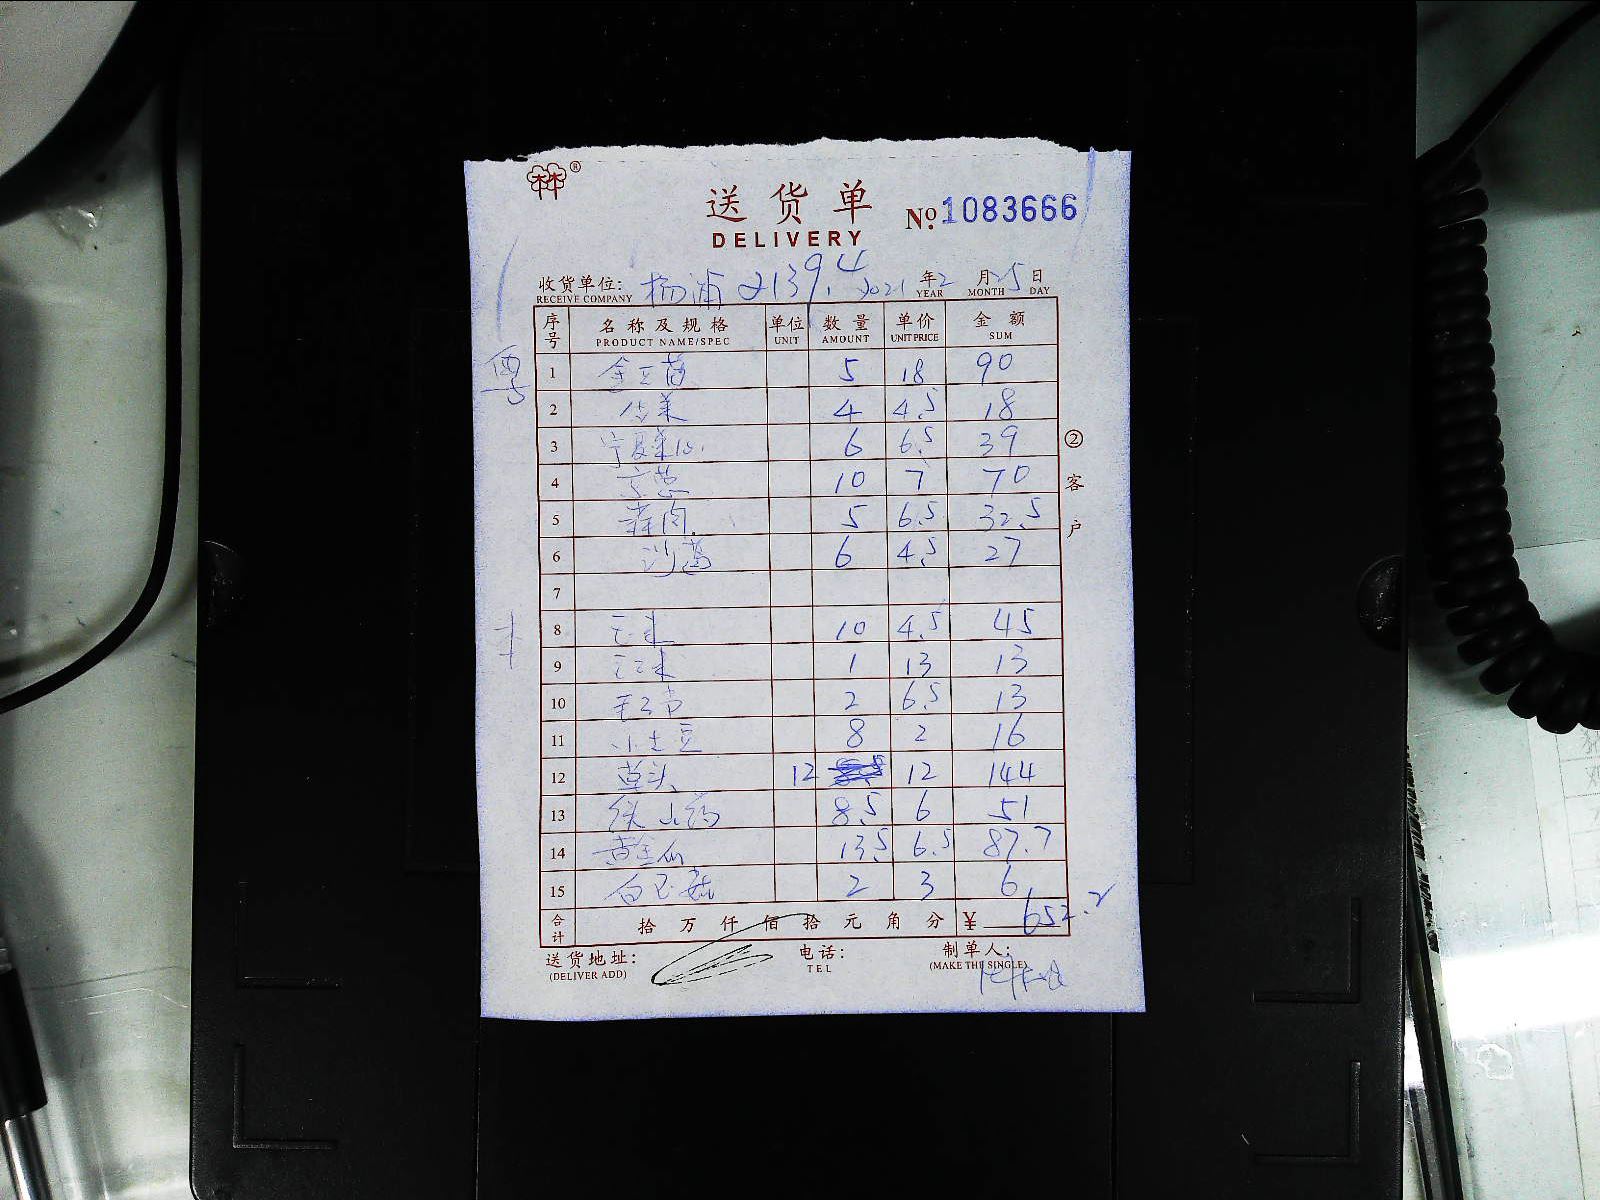 林®
送货单
DELIVERY
№ 1083666
收货单位: 杨浦 2139.4 2021 年 2 月 5 日
RECEIVE COMPANY YEAR MONTH DAY
序号 名称及规格 单位 数量 单价 金额
PRODUCT NAME/SPEC UNIT AMOUNT UNIT PRICE SUM
1 5 18 90
2 4 4.5 18
3 宁夏菜心 6 6.5 39
4 京葱 10 7 70
5 蒜肉 5 6.5 32.5
6 沙葛 6 4.5 27
7
8 玉米 10 4.5 45
9 1 13 13
10 2 6.5 13
11 小土豆 8 2 16
12 草头 12 12 144
13 铁山药 8.5 6 51
14 黄金瓜 13.5 6.5 87.7
15 白玉菇 2 3 6
合计 拾 万 仟 佰 拾 元 角 分 ¥ 652.2
② 客户
送货地址: 电话: 制单人:
(DELIVER ADD) TEL (MAKE THE SINGLE)